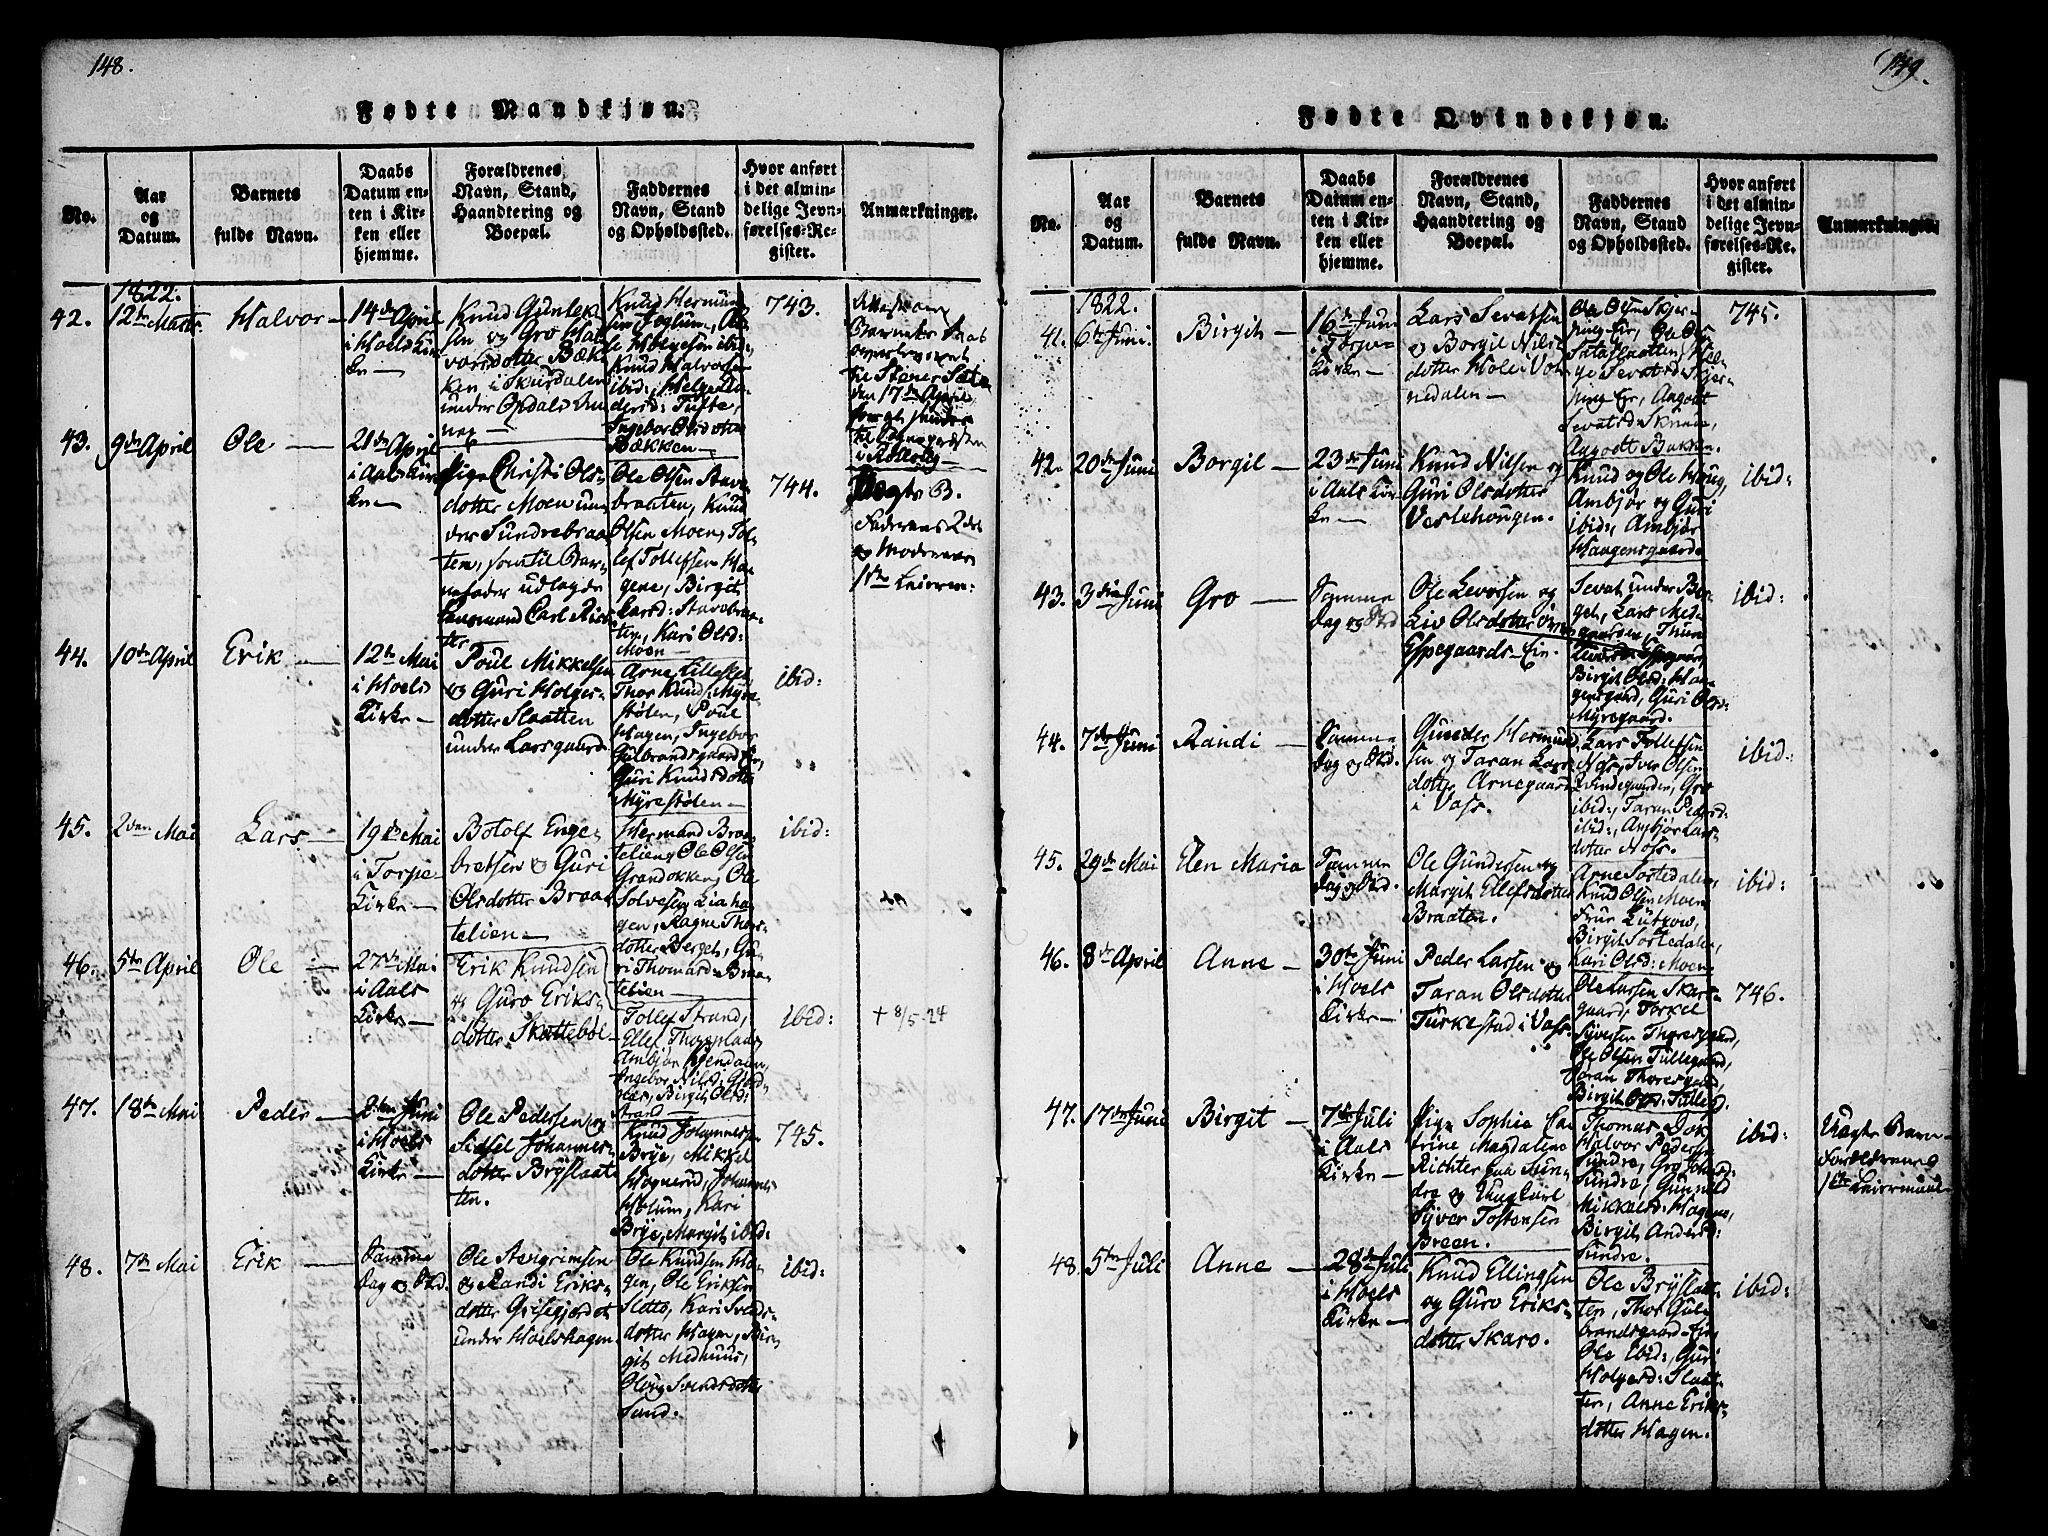 148.
Fødte Mandkjøn.
No.
Aar
og
Datum.
Barnets
fulde Navn.
Daabs
Datum en-
ten i Kir-
ken eller
hjemme.
Forældrenes
Navn, Stand,
Haandtering og
Boepæl.
Faddernes
Navn, Stand
og Opholdssted.
Hvor anført
i det almin-
delige Jevn-
førelses-Re-
gister.
Anmærkninger.
1822.
42.
12te Marts
Halvor
14de April
i Hoels Kir-
ke
Knud Gunlek-
sen og Gro Hal-
vorsdotter Bæk-
ken i Skurdalen
under Opdals An-
nex
Knud Hermun-
sen
Knud Halvorsen
ibid:, Helge
dersd: Tufte,
Ingebor Olsdotter
Bækken
743.
den 17de April
43.
9de April
Ole
21de April
i Aals Kir-
ke
Pige Christi Ols-
dotter Moen un-
der Sundrebraa-
ten, som til Bar-
nefader udlagde
Lensmand Carl Rich-
ter
Ole Olsen Stave-
braaten, Knud
Olsen Moen, Tol-
lef Tollefsen Ha-
gene, Birgit
Larsd: Stavebraa-
ten, Kari Olsd:
Moen
744.
Uægte B.
Faderens 2det
og Moderens
1ste Leierm:
44.
10de April
Erik
12te Mai
i Hoels
Kirke
Poul Mikkelsen
og Guri Holger-
dotter Slaatten
under Larsgaard
Arne Lilleslet,
Thor Knuds: Myre-
stølen, Poul
Hagen, Ingebor
Gulbrandsgaard
Guri Knudsdotter
Myrestølen
ibid:
45.
2den Mai
Lars
19de Mai
i Torpe
Kirke
Botolf Enge-
bretsen og Guri
Olsdotter Braa-
telien
Hermand Braa-
telien, Ole Olsen
Grandokken, Ole
Solvesen Liaha-
gen, Ragne Thors-
dotter Berget, Gu-
ri Thomasd: Braa-
telien
ibid:
46.
5te April
Ole
27de Mai
i Aals
Kirke
Erik Knudsen
og Guro Eriks-
dotter Skottebøl
Tollef Strand,
Ellef Thorsplads,
Ambjør
Ingebor Nilsd:
Birgit Olsd:
Strand
ibid:
+ 8/5-24
47.
18de Mai
Peder
2den Juni
i Hoels
Kirke
Ole Pedersen og
Sidsel Johannes-
dotter Bryslaat-
ten.
Knud Johannesen
Brye, Mikkel
Hognerud, Johannes
Holum, Kari
Brye, Margit ibid:
745.
48.
7de Mai
Erik
Samme
Dag og Sted.
Ole Asengrimsen
og Randi Eriks-
dotter Grisegjordet
under Hoelshagen.
Ole Knudsen Ha-
gen, Ole Eriksen
Slotto, Kari Svends-
dotter Hagen, Bir-
git Medhuus,
Svendsdotter
Sund.
ibid:
149.
Fødte Qvindekjøn.
No.
Aar
og
Datum.
Barnets
fulde Navn.
Daabs
Datum en-
ten i Kir-
ken eller
hjemme.
Forældrenes
Navn, Stand,
Haandtering og
Boepæl.
Faddernes
Navn, Stand
og Opholdssted.
Hvor anført
i det almin-
delige Jevn-
førelses-Re-
gister.
Anmærkninger.
1822.
41.
6te Juni.
Birgit
16de Juni
i Torpe
Kirke
Lars Sevatsen
og Borgil Nils-
dotter Hole i Vor-
nedalen
Ole Olsen Skjer-
ping-Eje, Ole Ols:
Sataslaatten, Hel-
ge Sevatsd: Skjer-
ping Eje, Aagodt
Sevatsd: Skrinde,
Aagodt Bakken.
745.
42.
20de Juni
Borgil
23de Juni
i Aals Kir-
ke
Knud Nilsen og
Guri Olsdotter
Vestlehougen.
Knud og Ole Houg,
Ambjør og Guri
ibid:, Ambjør
Haagensgaard.
ibid:
43.
3die Juni
Gro
Samme
Dag og Sted
Ole Levorsen og
Liv Olsdotter Øvre
Espegaards-Eie.
Sevat under Ber-
get, Lars Mede-
gaarden,
Birgit Olsd: Haa-
gensgaard, Guri Olsd:
Myregaard.
ibid:
44.
7de Juni
Randi
Samme
Dag og Sted.
Gunder Hermund-
sen og Taran Lars-
dotter Arnegaard
i Vass.
Lars Tollefsen
Noss, Iver Olsen
Qvindegaarden, Gro
ibid:, Taran Pedersd:
ibid:, Ambjør Lars-
dotter Noss.
ibid:
45.
29de Mai
Elen Maria
Samme
Dag og Sted.
Ole Gundersen og
Margit Ellefsdotter
Braaten.
Arne Sortedalen,
Knud Olsen Moen
Frue Lützow,
Birgit Sortedalen,
Kari Olsd: Moen.
ibid:
46.
8de April
Anne
30te Juni
i Hoels
Kirke
Peder Larsen og
Taran Olsdotter
Turkestad i Vass.
Ole Larsen Skars-
gaard, Torkel
Syversen Thoresgaard,
Ole Olsen Tullegaard,
Taran Thoresgaard,
Birgit Olsd: Tulleg.
746.
47.
17de Juni
Birgit
7de Juli
i Aals
Kirke
Pige Sophie Ca-
trine Magdalene
Richter paa Sun-
dre og Ungkarl
Syver Tostensen
Breen.
Thomas Dok,
Halvor Pedersen
Sundre, Gro Johansd:
Sundre, Gunnild
Mikkelsd: Hagene,
Birgit Andersd:
Sundre.
ibid:
Uægte Barn
Forældrenes
1ste Leiermaal
48.
5te Juli
Anne
28de Juli
i Hoels
Kirke
Knud Ellingsen
og Guro Eriks-
dotter Skaro.
Ole Bryslaat-
ten, Thor Gul-
brandsgaard-Eje,
Ole ibid:, Guri
Holgersd: Slaat-
ten, Anne Eriks-
dotter Hagen.
ibid: